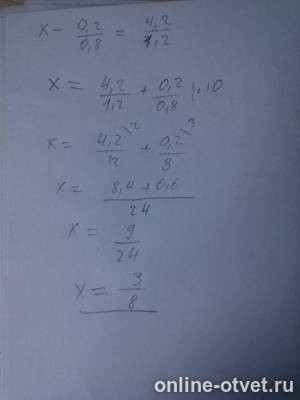 x - 0,2/0,8 = 4,2/1,2
x = 4,2/1,2 + 0,2/0,8 |·10
x = 4,2\2/12 + 0,2\3/8
x = 8,4+0,6/24
x = 9/24
x = 3/8
online-otvet.ru